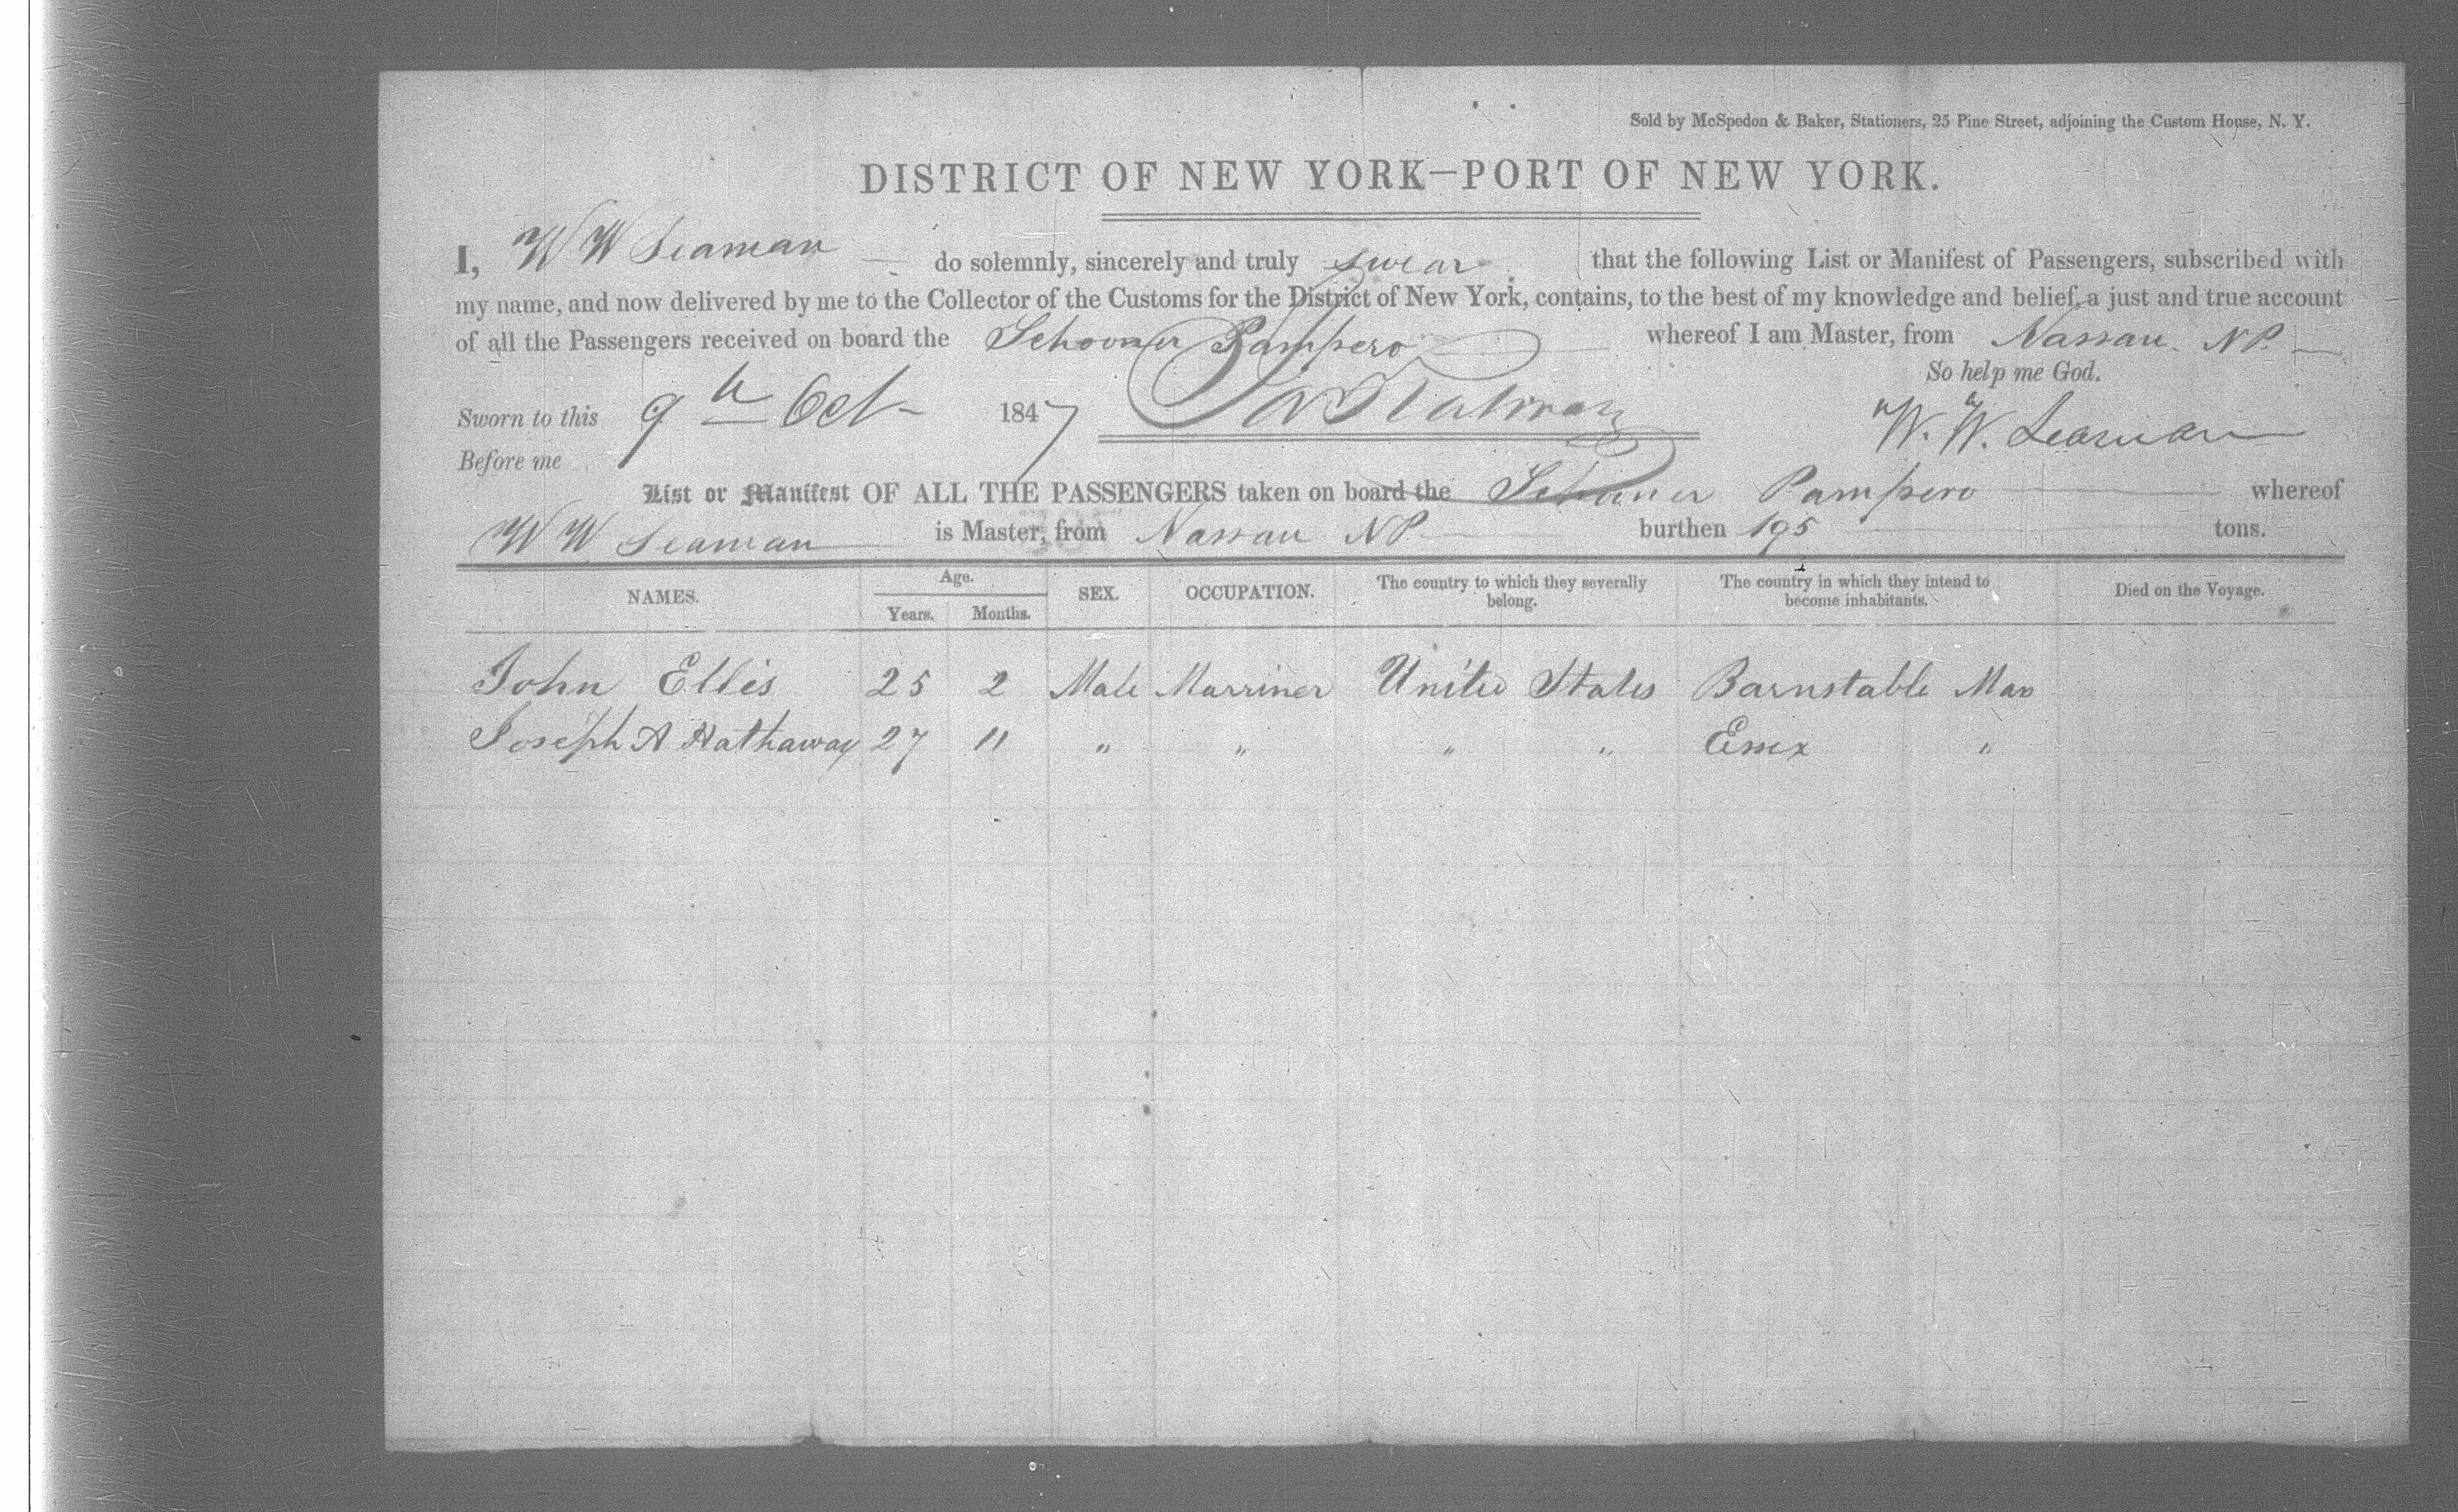 Sold by McSpedon & Baker, Stationers, 25 Pine Street, adjoining the Custom House, N. Y.
DISTRICT OF NEW YORK—PORT OF NEW YORK.
I, W W Seaman do solemnly, sincerely and truly swear that the following List or Manifest of Passengers, subscribed with
my name, and now delivered by me to the Collector of the Customs for the District of New York, contains, to the best of my knowledge and belief, a just and true account
of all the Passengers received on board the Schooner Pampero whereof I am Master, from Nassau. NP.
So help me God.
Sworn to this 9th Oct 1847
W. W. Seaman
Before me
List or Manifest OF ALL THE PASSENGERS taken on board the Schooner Pampero whereof
W W Seaman is Master, from Nassau NP burthen 195 tons.
NAMES. Age. Years. Months. SEX. OCCUPATION. The country to which they severally belong. The country in which they intend to become inhabitants. Died on the Voyage.
John Ellis 25 2 Male Marriner United States Barnstable Mas
Joseph A Hathaway 27 11 " " " " Essex "